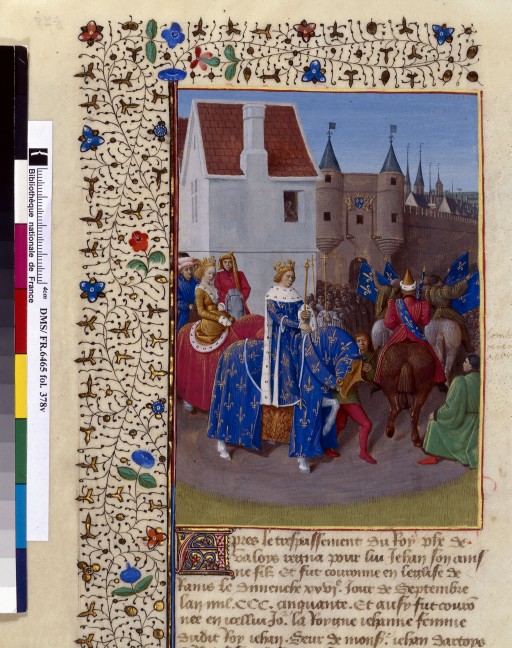 Bibliothèque nationale de France
4cm
DMS/ FR.6465 fol. 378v
Apres le trespassement du Roy phe de
valoys regna pour lui Jehan son ains
ne filz Et fut couronne en leglise de
Rains le Dimenche xxvi. Jour de Septembre
lan mil. CCC. cinquante. Et aussy fut couro
nee en icellui Jo. la Royne iehanne femme
dudit Roy iehan. Seur de mons. iehan dartoys